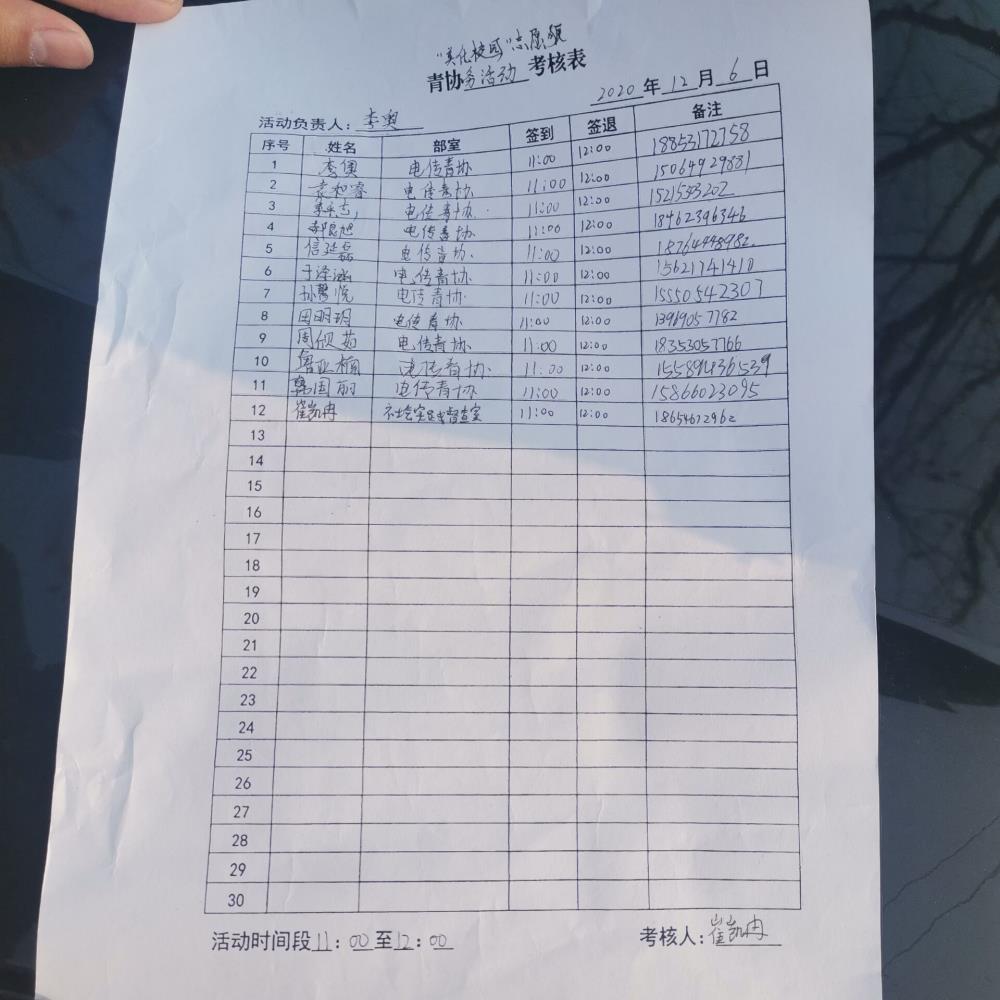 "美化校园"志愿服
青协务活动考核表
2020年12月6日
活动负责人：李奥
序号 姓名 部室 签到 签退 备注
1 李奥 电传青协 11:00 12:00 18853172758
2 袁和睿 电传青协 11:00 12:00 15064929881
3 电传青协 11:00 12:00 1521533202
4 电传青协 11:00 12:00 18462396346
5 信延磊 电传青协 11:00 12:00 18764448982
6 于泽涵 电传青协 11:00 12:00 15621741410
7 孙馨悦 电传青协 11:00 12:00 15550542307
8 田明玥 电传青协 11:00 12:00 13969057782
9 周砚茹 电传青协 11:00 12:00 18353057766
10 鲁亚楠 电传青协 11:00 12:00
11 韩国丽 电传青协 11:00 12:00 15866023095
12 崔凯冉 社会实践督查室 11:00 12:00 18654672962
13
14
15
16
17
18
19
20
21
22
23
24
25
26
27
28
29
30
活动时间段11：00至12：00 考核人：崔凯冉